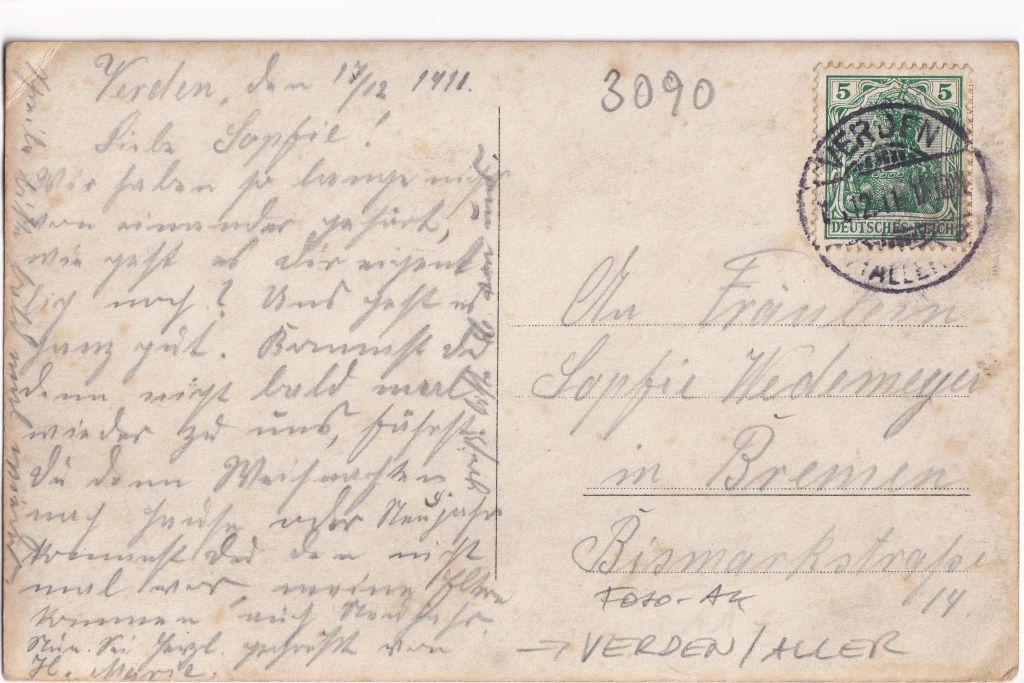 Verden, den 17/12 1911.
Liebe Sophie!
Wir haben so lange nichts
von einander gehört,
wie geht es dir eigent
lich noch? Uns geht es
ganz gut. Kommst du
denn nicht bald mal
wieder zu uns, fährst
du denn Weihnachten
nach Hause oder Neujahr
kommst du den nicht
mal vor, meine Eltern
kommen auch Neujahr.
Nun Sei Herzl. gegrüßt von
Marie.
3090
5 5
VERDEN
12.11
(ALLER)
DEUTSCHES REICH
An Fräulein
Sophie Wedemeyer
in Bremen
Bismarkstraße
14.
FOTO-AK
→ VERDEN/ALLER